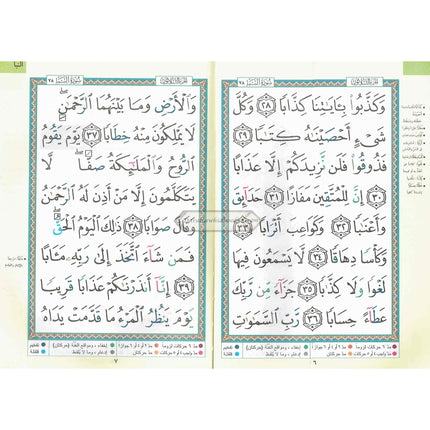 الجزء الثلاثون
سورة النبإ ٧٨
وَكَذَّبُوا۟ بِـَٔايَـٰتِنَا كِذَّابًا ﴿٢٨﴾ وَكُلَّ
شَىْءٍ أَحْصَيْنَـٰهُ كِتَـٰبًا ﴿٢٩﴾
فَذُوقُوا۟ فَلَن نَّزِيدَكُمْ إِلَّا عَذَابًا
﴿٣٠﴾ إِنَّ لِلْمُتَّقِينَ مَفَازًا ﴿٣١﴾ حَدَآئِقَ
وَأَعْنَـٰبًا ﴿٣٢﴾ وَكَوَاعِبَ أَتْرَابًا ﴿٣٣﴾
وَكَأْسًا دِهَاقًا ﴿٣٤﴾ لَّا يَسْمَعُونَ فِيهَا
لَغْوًا وَلَا كِذَّٰبًا ﴿٣٥﴾ جَزَآءً مِّن رَّبِّكَ
عَطَآءً حِسَابًا ﴿٣٦﴾ رَّبِّ ٱلسَّمَـٰوَٰتِ
٦
النبإ
الجزء الثلاثون
سورة النبإ ٧٨
وَٱلْأَرْضِ وَمَا بَيْنَهُمَا ٱلرَّحْمَـٰنِ ۖ
لَا يَمْلِكُونَ مِنْهُ خِطَابًا ﴿٣٧﴾ يَوْمَ يَقُومُ
ٱلرُّوحُ وَٱلْمَلَـٰٓئِكَةُ صَفًّا ۖ لَّا
يَتَكَلَّمُونَ إِلَّا مَنْ أَذِنَ لَهُ ٱلرَّحْمَـٰنُ
وَقَالَ صَوَابًا ﴿٣٨﴾ ذَٰلِكَ ٱلْيَوْمُ ٱلْحَقُّ ۖ
فَمَن شَآءَ ٱتَّخَذَ إِلَىٰ رَبِّهِۦ مَـَٔابًا
﴿٣٩﴾ إِنَّآ أَنذَرْنَـٰكُمْ عَذَابًا قَرِيبًا
يَوْمَ يَنظُرُ ٱلْمَرْءُ مَا قَدَّمَتْ يَدَاهُ
٧